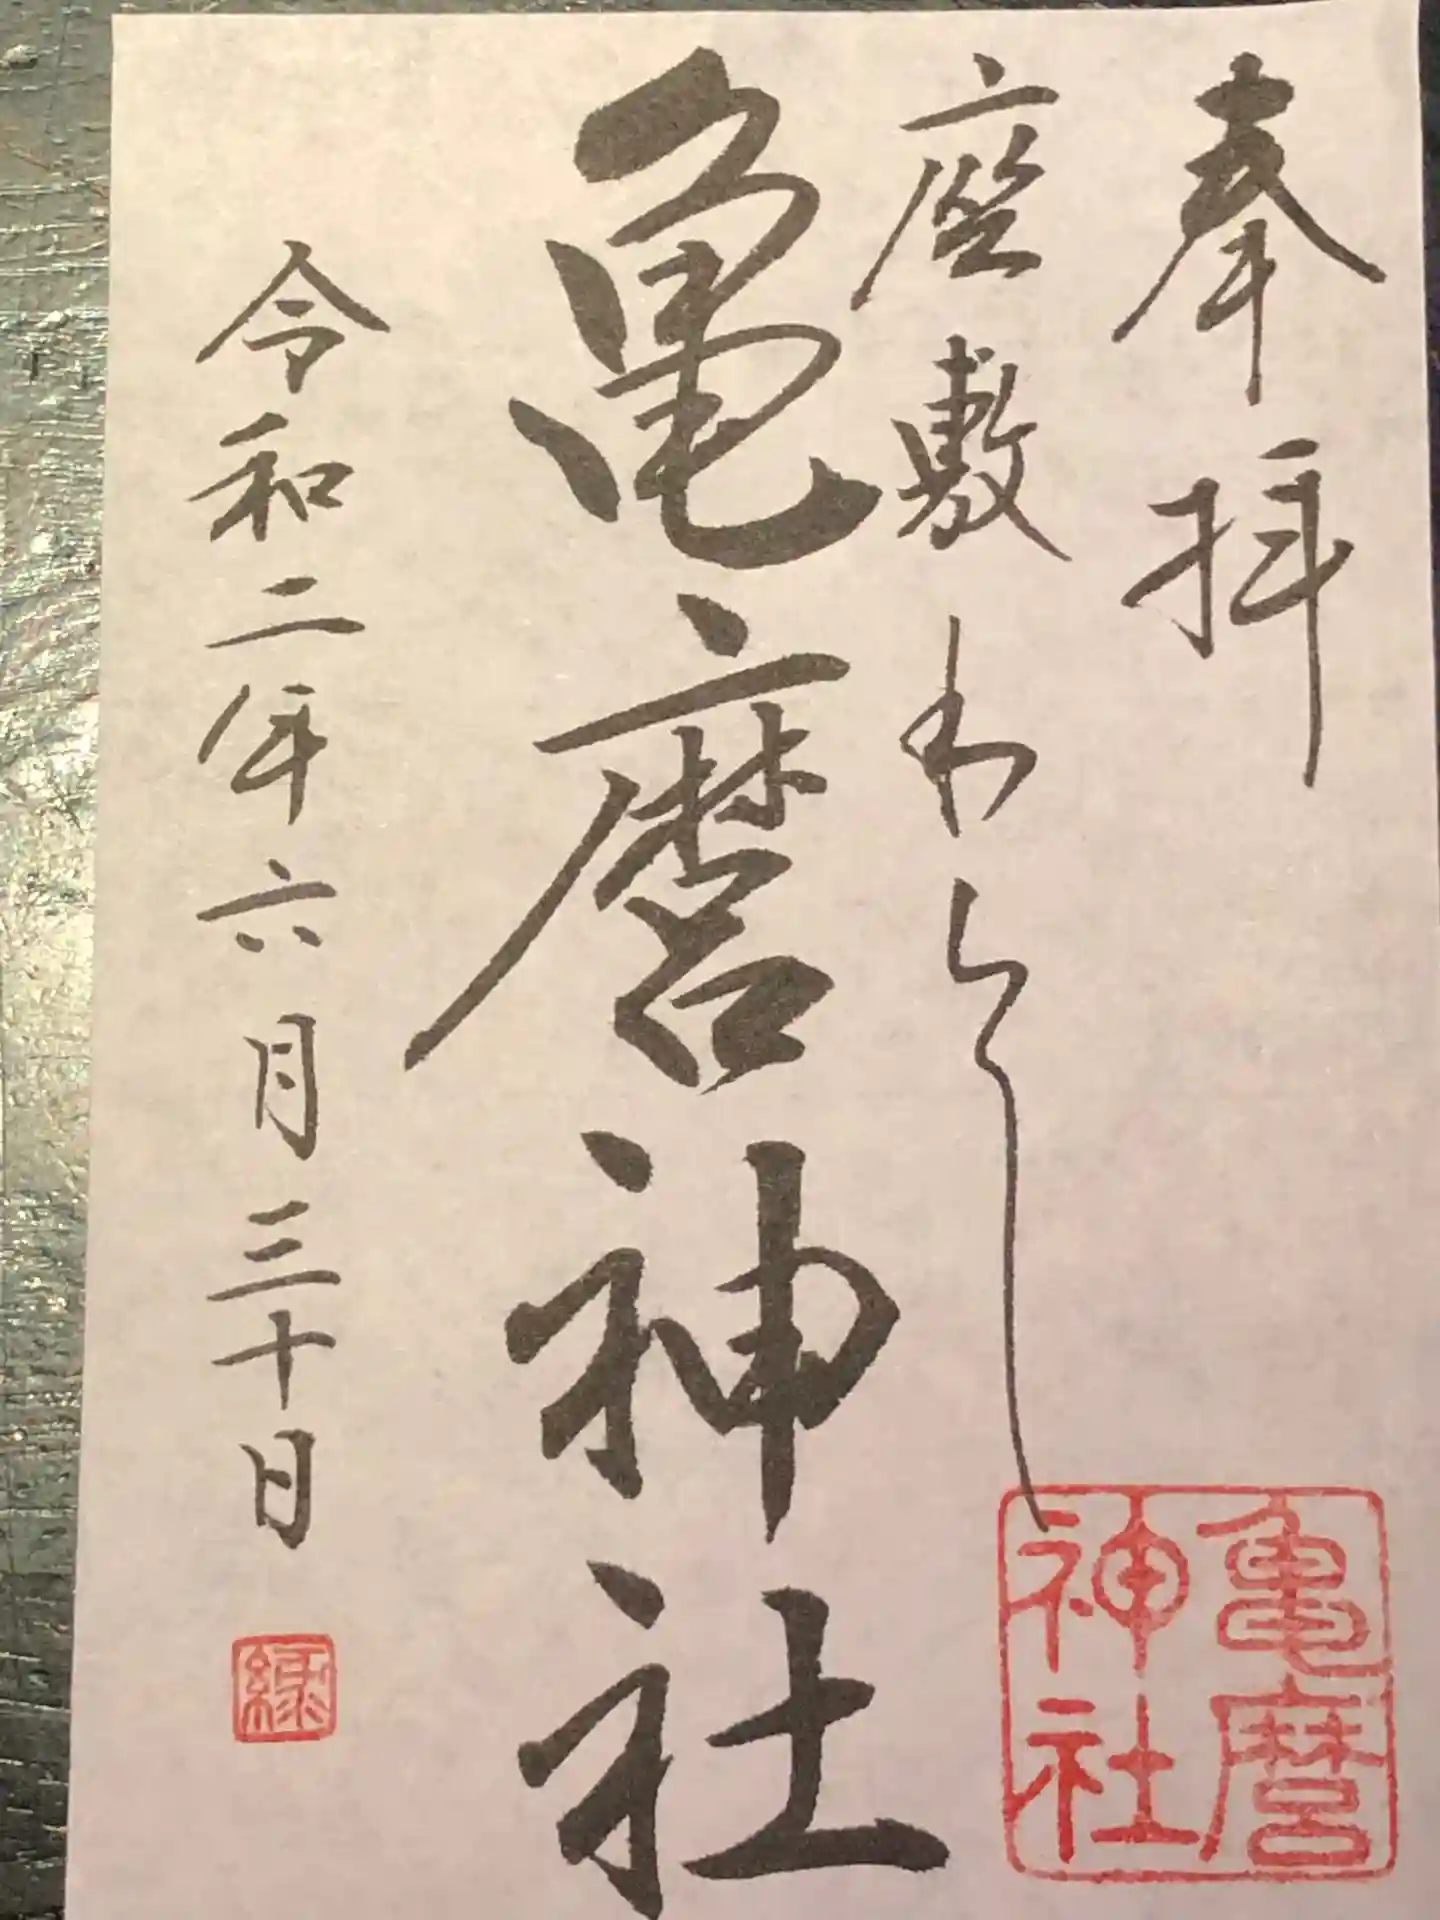 奉拝
座敷わらし
亀麿神社
令和二年六月三十日
亀麿神社